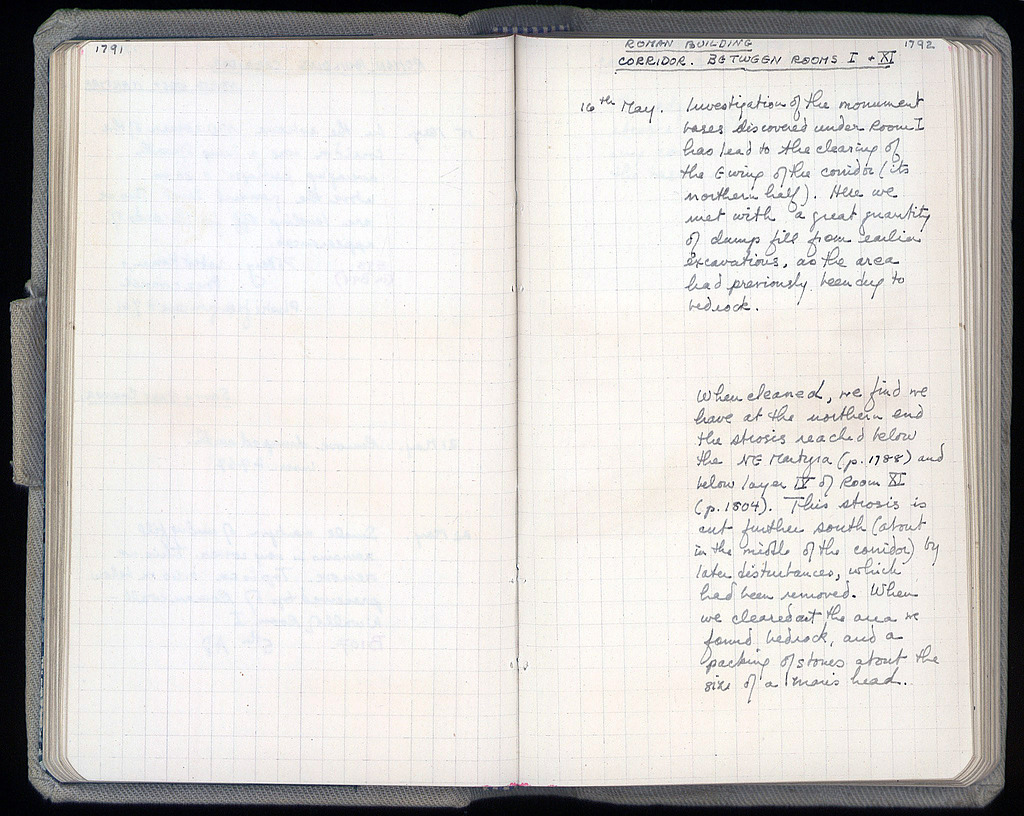 1791
1792
ROMAN BUILDING
CORRIDOR. BETWEEN ROOMS I + XI
16th May. Investigation of the monument
bases discovered under Room I
has lead to the clearing of
the E wing of the corridor (its
northern half). Here we
met with a great quantity
of dump fill from earlier
excavations, as the area
had previously been dug to
bedrock.
When cleaned, we find we
have at the northern end
the strosis reached below
the NE Martyra (p. 1788) and
below layer IV of Room XI
(p. 1804). This strosis is
cut further south (about
in the middle of the corridor) by
later disturbances, which
had been removed. When
we cleared out the area we
found bedrock, and a
packing of stones about the
size of a man's head.